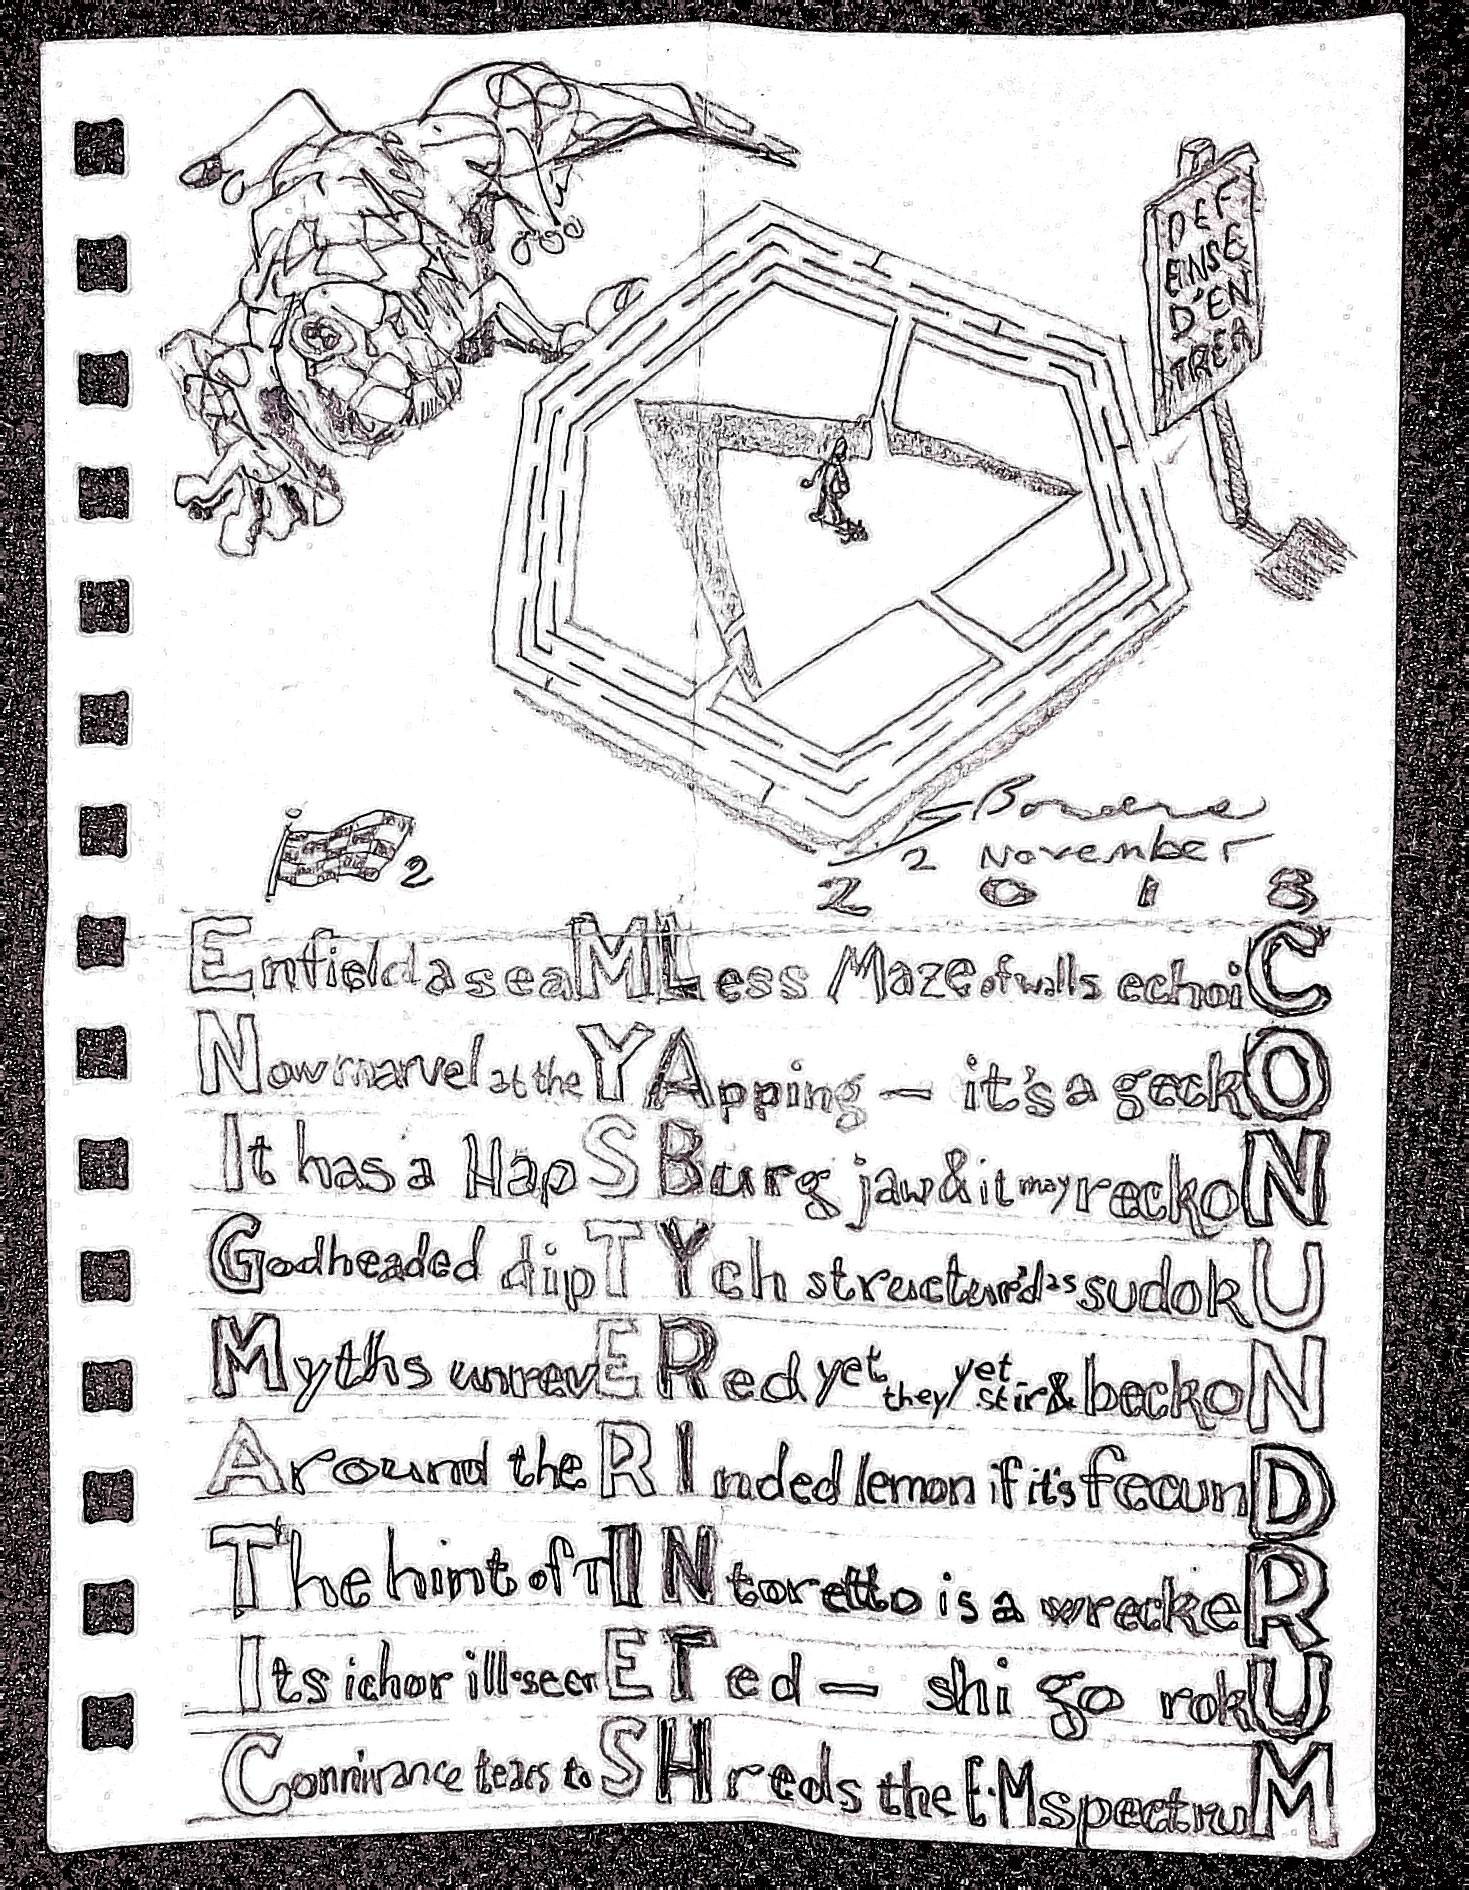 DEF
ENSE
D'EN
TREA
2 November
2 0 1 8
2
Enfield a seaMLess Maze of walls echoiC
Now marvel at the YApping — it's a geckO
It has a HapSBurg jaw & it may reckoN
Godheaded dipTYch structur'd as sudokU
Myths unrevERed yet they yet stir & beckoN
Around the RInded lemon if it's fecunD
The hint of TINtoretto is a wreckeR
Its ichor ill-secrETed — shi go rokU
Connivance tears to SHreds the E.M spectruM